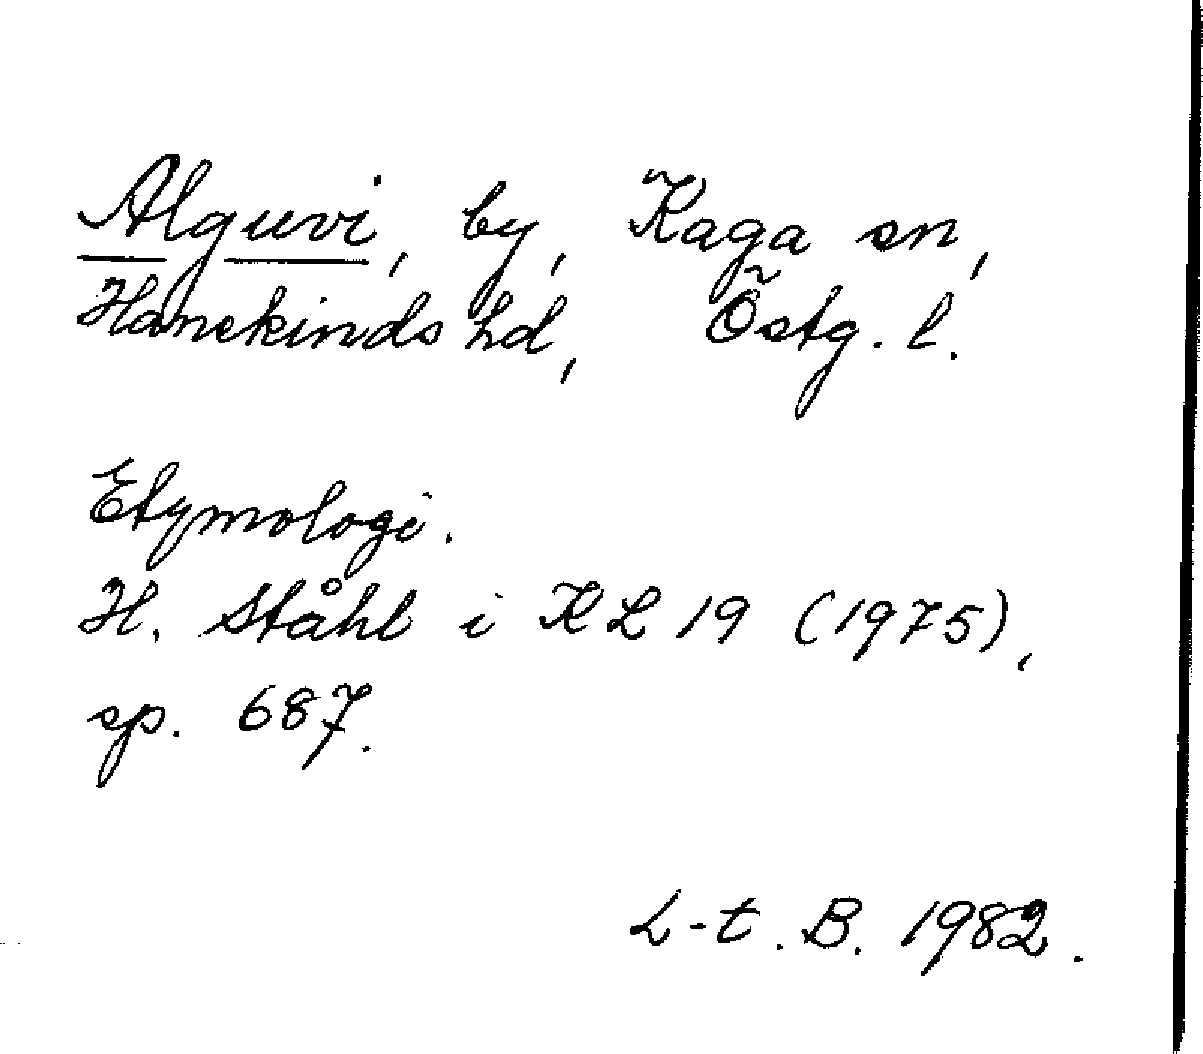 Alguvi, by, Kaga sn,
Hanekinds hd, Östg. l.
Etymologi.
H. Ståhl i KL 19 (1975),
sp. 687.
L-t. B. 1982.